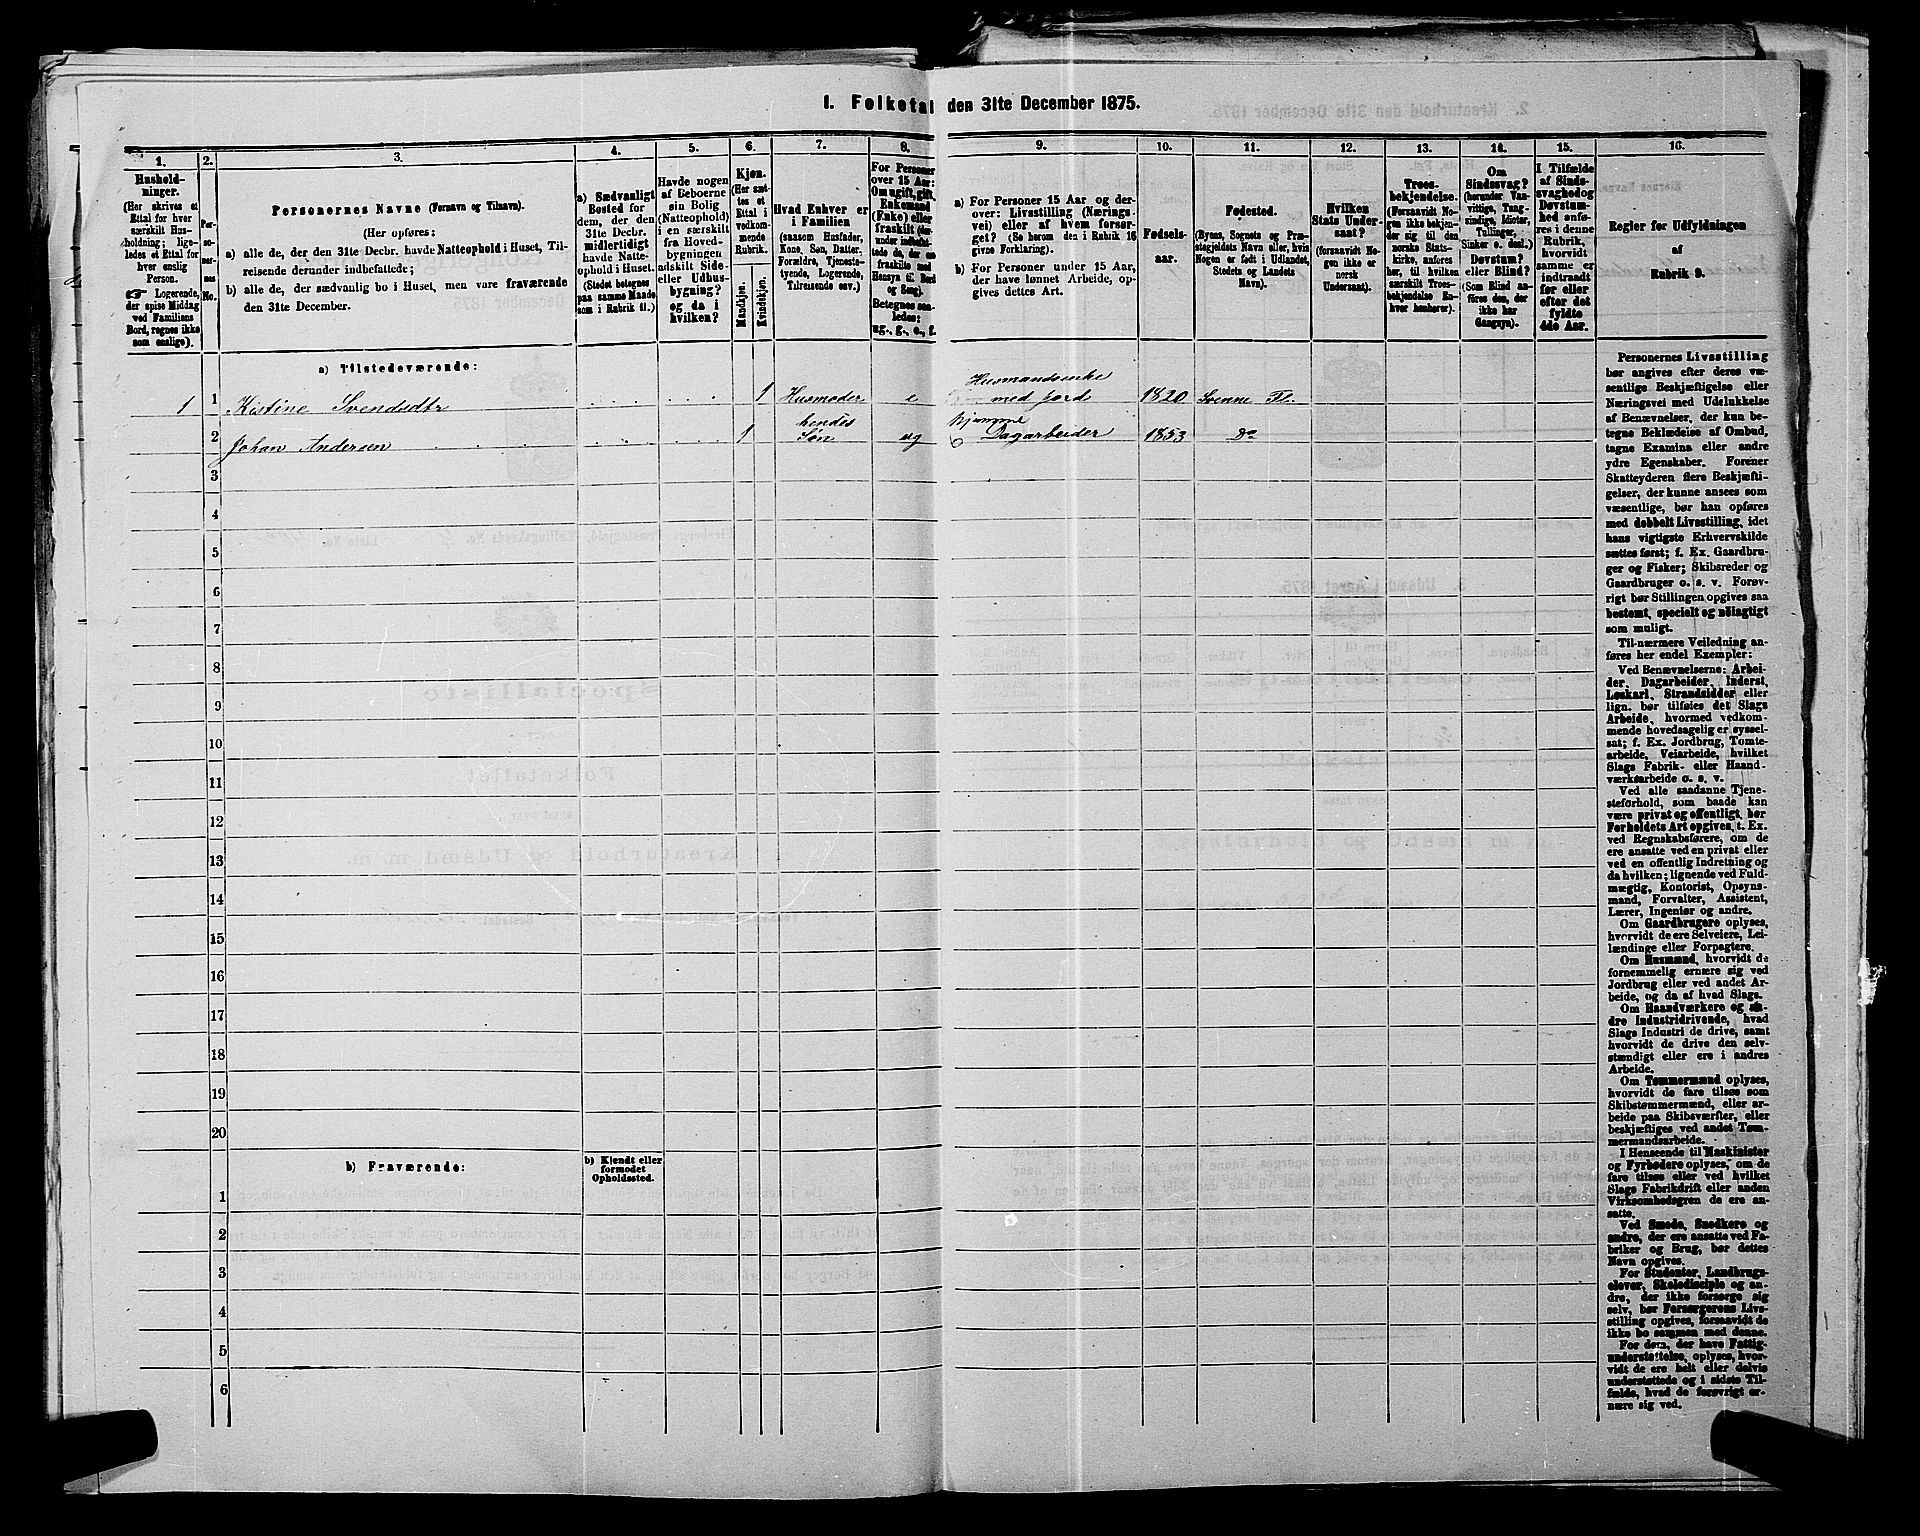 1. Folketal den 31te December 1875.
1.
2.
3.
4.
5.
6.
7.
8.
9.
10.
11.
12.
13.
14.
15.
16.
Hushold-
ninger.
(Her skrives et
Ettal for hver
særskilt Hus-
holdning; lige-
ledes et Ettal for
hver enslig
Person.
☞ Logerende,
der spise Middag
ved Familiens
Bord, regnes ikke
som enslige).
Per-
so-
ner-
nes
No.
Personernes Navne (Fornavn og Tilnavn).
(Her opføres:
a) alle de, der den 31te Decbr. havde Natteophold i Huset, Til-
reisende derunder indbefattede;
b) alle de, der sædvanlig bo i Huset, men vare fraværende
den 31te December.
a) Sædvanligt
Bosted for
dem, der den
31te Decbr.
midlertidigt
havde Natte-
ophold i Huset.
(Stedet betegnes
paa samme Maade
som i Rubrik 11.)
Havde nogen
af Beboerne
sin Bolig
(Natteophold)
i en særskilt
fra Hoved-
bygningen
adskilt Side-
eller Udhus-
bygning?
og da i
hvilken?
Kjøn.
(Her sæt-
tes et
Ettal i
vedkom-
mende
Rubrik.
Mandkjøn.
Kvindekjøn.
Hvad Enhver er
i Familien
(saasom Husfader,
Kone, Søn, Datter,
Forældre, Tjeneste-
tyende, Logerende,
Tilreisende osv.)
For Personer
over 15 Aar:
Om ugift, gift,
Enkemand
(Enke) eller
fraskilt
Betegnes saa-
ledes:
ug., g., e., f.
a) For Personer 15 Aar og der-
over: Livsstilling (Nærings-
vei) eller af hvem forsør-
get? (Se herom den i Rubrik 16
givne Forklaring).
b) For Personer under 15 Aar,
der have lønnet Arbeide, op-
gives dettes Art.
Fødsels-
aar.
Fødested.
(Byens, Sognets og Præ-
stegjeldets Navn eller, hvis
Nogen er født i Udlandet,
Stedets og Landets
Navn).
Hvilken
Stats Under-
saat?
(forsaavidt No-
gen ikke er
norsk
Undersaat).
Troes-
bekjendelse.
(Forsaavidt No-
gen ikke bekjen-
der sig til den
norske Stats-
kirke, anføres
her, til hvilken
særskilt Troes-
bekjendelse En-
hver henhører).
Om
Sindssvag?
(herunder Van-
vittige, Tung-
sindige, Idioter,
Tullinger,
Sinker o. desl.)
Døvstum?
eller Blind?
(Som Blind an-
føres den, der
ikke har
Gangsyn).
I Tilfælde
af Sinds-
svaghed og
Døvstum-
hed anfø-
res i denne
Rubrik,
hvorvidt
samme er
indtraadt
før eller
efter det
fyldte
4de Aar.
Regler for Udfyldningen
af
Rubrik 9.
a) Tilstedeværende:
1 1 Kistine Svendsdtr 1 Husmoder e Husmandsenke med Jord 1820 Svenne Fl.
2 Johan Andersen 1 hendes Søn ug hjemme Dagarbeider 1853 do
3
4
5
6
7
8
9
10
11
12
13
14
15
16
17
18
19
20
b) Fraværende:
b) Kjendt eller
formodet
Opholdssted.
1
2
3
4
5
6
Personernes Livsstilling
bør angives efter deres væ-
sentlige Beskjæftigelse eller
Næringsvei med Udelukkelse
af Benævnelser, der kun be-
tegne Beklædelse af Ombud,
tagne Examina eller andre
ydre Egenskaber. Forener
Skatteyderen flere Beskjæfti-
gelser, der kunne ansees som
væsentlige, bør han opføres
med dobbelt Livsstilling, idet
hans vigtigste Erhvervskilde
sættes først; f. Ex. Gaardbru-
ger og Fisker; Skibsreder og
Gaardbruger o. s. v. Forøv-
rigt bør Stillingen opgives saa
bestemt, specielt og nöiagtigt
som muligt.
Til-nærmere Veiledning an-
føres her endel Exempler:
Ved Benævnelserne: Arbei-
der, Dagarbeider, Inderst,
Løskarl, Strandsidder eller
lign. bør tilføies det Slags
Arbeide, hvormed vedkom-
mende hovedsagelig er syssel-
sat; f. Ex. Jordbrug, Tomte-
arbeide, Veiarbeide, hvilket
Slags Fabrik- eller Haand-
værksarbeide o. s. v.
Ved alle saadanne Tjene-
steforhold, som baade kan
være privat og offentligt, bør
Forholdets Art opgives, t. Ex.
ved Regnskabsførere, om de
ere ansatte ved en privat eller
ved en offentlig Indretning og
da hvilken; lignende ved Fuld-
mægtig, Kontorist, Opsyns-
mand, Forvalter, Assistent,
Lærer, Ingeniør og andre.
Om Gaardbrugere oplyses,
hvorvidt de ere Selveiere, Lei-
lændinge eller Forpagtere.
Om Husmænd, hvorvidt de
fornemmelig ernære sig ved
Jordbrug eller ved andet Ar-
beide, og da af hvad Slags.
Om Haandværkere og an-
dre Industridrivende, hvad
Slags Industri de drive, samt
hvorvidt de drive den selv-
stændigt eller ere i andres
Arbeide.
Om Tømmermænd oplyses,
hvorvidt de fare tilsøs som
Skibstømmermænd, eller ar-
beide paa Skibsværfter, eller
beskjæftiges ved andet Tøm-
mermandsarbeide.
I Henseende til Maskinister
og Fyrbødere oplyses, om de
fare tilsøs eller ved hvilket
Slags Fabrikdrift eller anden
Virksomhedsgren de ere an-
satte.
Ved Smede, Snedkere og
andre, der ere ansatte ved Fa-
briker og Brug, bør dettes
Navn opgives.
For Studenter, Landbrugs-
elever, Skoledisciple og an-
dre, der ikke forsørge sig
selv, bør Forsørgerens Livs-
stilling opgives, forsaavidt de
ikke bo sammen med denne.
For dem, der have Fattig-
understøttelse, oplyses, hvor-
vidt de ere helt eller delvis
understøttede og i sidste Til-
fælde, hvad de forøvrigt er-
nære sig ved.